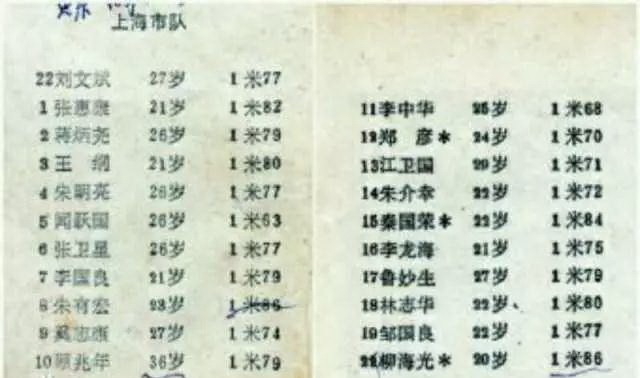 上海市队
22刘文斌 27岁 1米77
1 张惠康 21岁 1米82
2 蒋炳尧 26岁 1米79
3 王 钢 21岁 1米80
4 朱明亮 26岁 1米77
5 闻跃国 26岁 1米63
6 张卫星 26岁 1米77
7 李国良 21岁 1米79
8 朱有宏 23岁 1米86
9 奚志康 27岁 1米74
10 顾兆年 36岁 1米79
11李中华 25岁 1米68
12郑 彦* 24岁 1米70
13江卫国 29岁 1米71
14朱介幸 22岁 1米72
15秦国荣* 22岁 1米84
16李龙海 21岁 1米75
17鲁妙生 27岁 1米79
18林志华 22岁 1米80
19邹国良 22岁 1米77
柳海光* 20岁 1米86